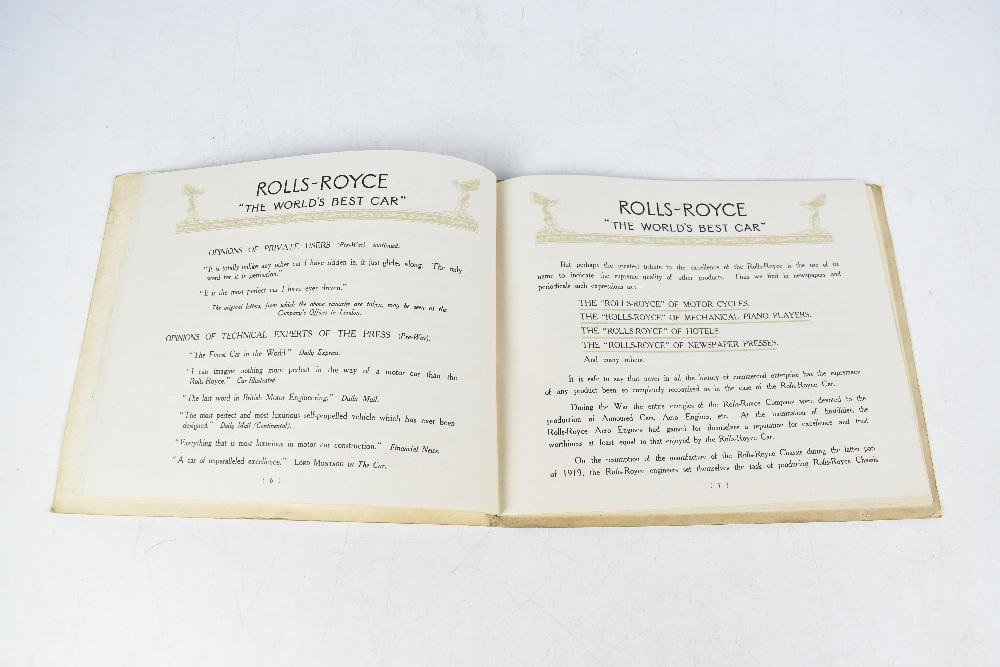 ROLLS-ROYCE
"THE WORLD'S BEST CAR"
OPINIONS OF PRIVATE USERS (Pre-War) continued.
"It is totally unlike any other car I have ridden in, it just glides along. The only
word for it is perfection."
"It is the most perfect car I have ever driven."
The original letters, from which the above extracts are taken, may be seen at the
Company's Offices in London.
OPINIONS OF TECHNICAL EXPERTS OF THE PRESS (Pre-War).
"The Finest Car in the World." Daily Express.
"I can imagine nothing more perfect in the way of a motor car than the
Rolls-Royce." Car Illustrated.
"The last word in British Motor Engineering." Daily Mail.
"The most perfect and most luxurious self-propelled vehicle which has ever been
designed." Daily Mail (Continental).
"Everything that is most luxurious in motor car construction." Financial News.
"A car of unparalleled excellence." LORD MONTAGU in The Car.
( 6 )
ROLLS-ROYCE
"THE WORLD'S BEST CAR"
But perhaps the greatest tribute to the excellence of the Rolls-Royce is the use of its
name to indicate the supreme quality of other products. Thus we find in newspapers and
periodicals such expressions as:
THE "ROLLS-ROYCE" OF MOTOR CYCLES.
THE "ROLLS-ROYCE" OF MECHANICAL PIANO PLAYERS.
THE "ROLLS-ROYCE" OF HOTELS.
THE "ROLLS-ROYCE" OF NEWSPAPER PRESSES.
And many others.
It is safe to say that never in all the history of commercial enterprise has the supremacy
of any product been so completely recognised as in the case of the Rolls-Royce Car.
During the War the entire energies of the Rolls-Royce Company were devoted to the
production of Armoured Cars, Aero Engines, etc. At the termination of hostilities, the
Rolls-Royce Aero Engines had gained for themselves a reputation for excellence and trust
worthiness at least equal to that enjoyed by the Rolls-Royce Car.
On the resumption of the manufacture of the Rolls-Royce Chassis during the latter part
of 1919, the Rolls-Royce engineers set themselves the task of producing Rolls-Royce Chassis
( 7 )